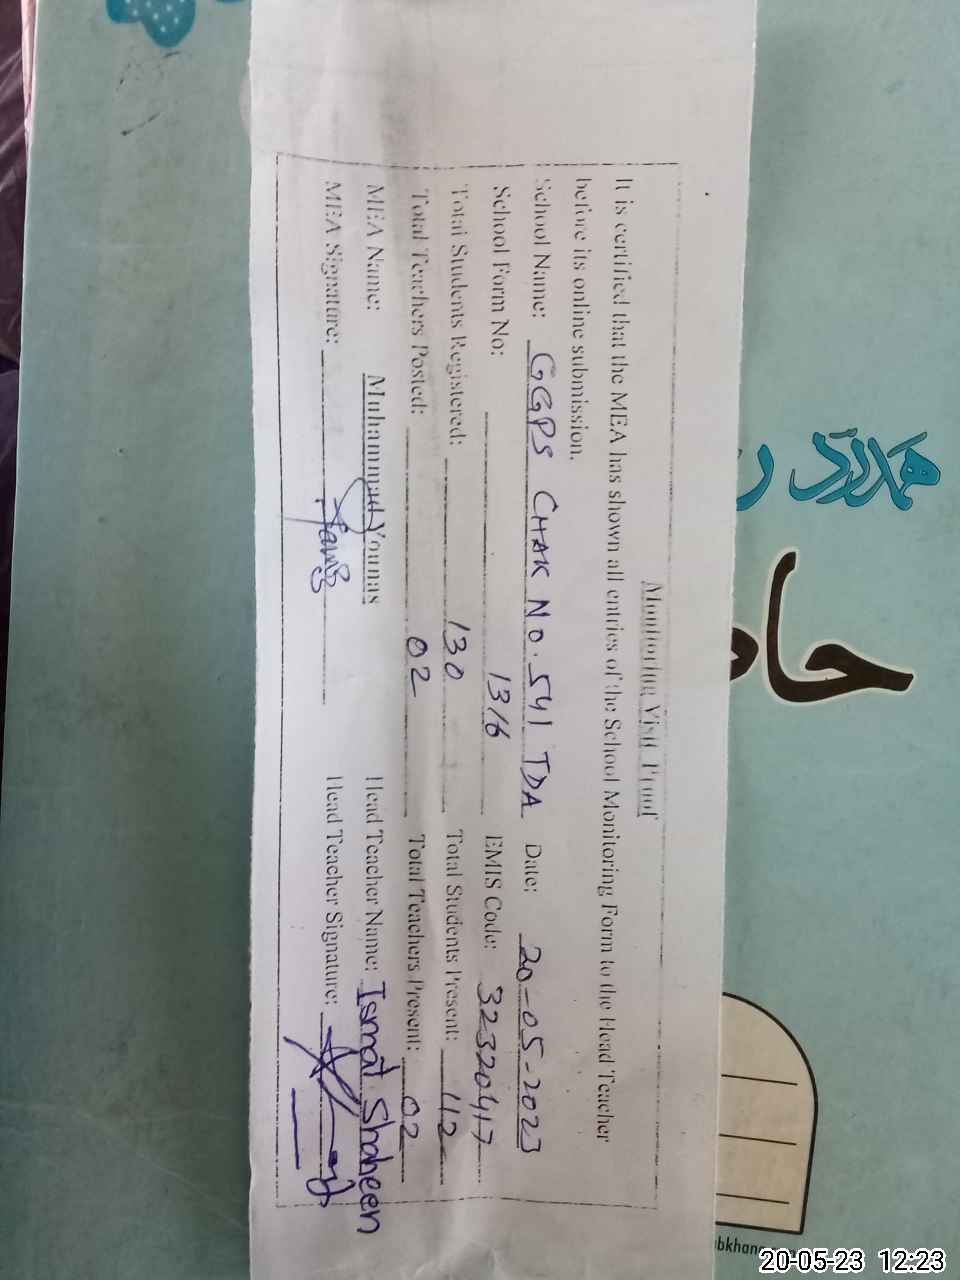 Monitoring Visit Proof
It is certified that the MEA has shown all entries of the School Monitoring Form to the Head Teacher
before its online submission.
School Name: GGPS CHAK NO. 541 TDA Date: 20-05-2023
School Form No: 1316 EMIS Code: 32320417
Total Students Registered: 130 Total Students Present: 112
Total Teachers Posted: 02 Total Teachers Present: 02
MEA Name: Muhammad Younas Head Teacher Name: Ismat Shaheen
MEA Signature: Head Teacher Signature:
ھمدرد
20-05-23 12:23